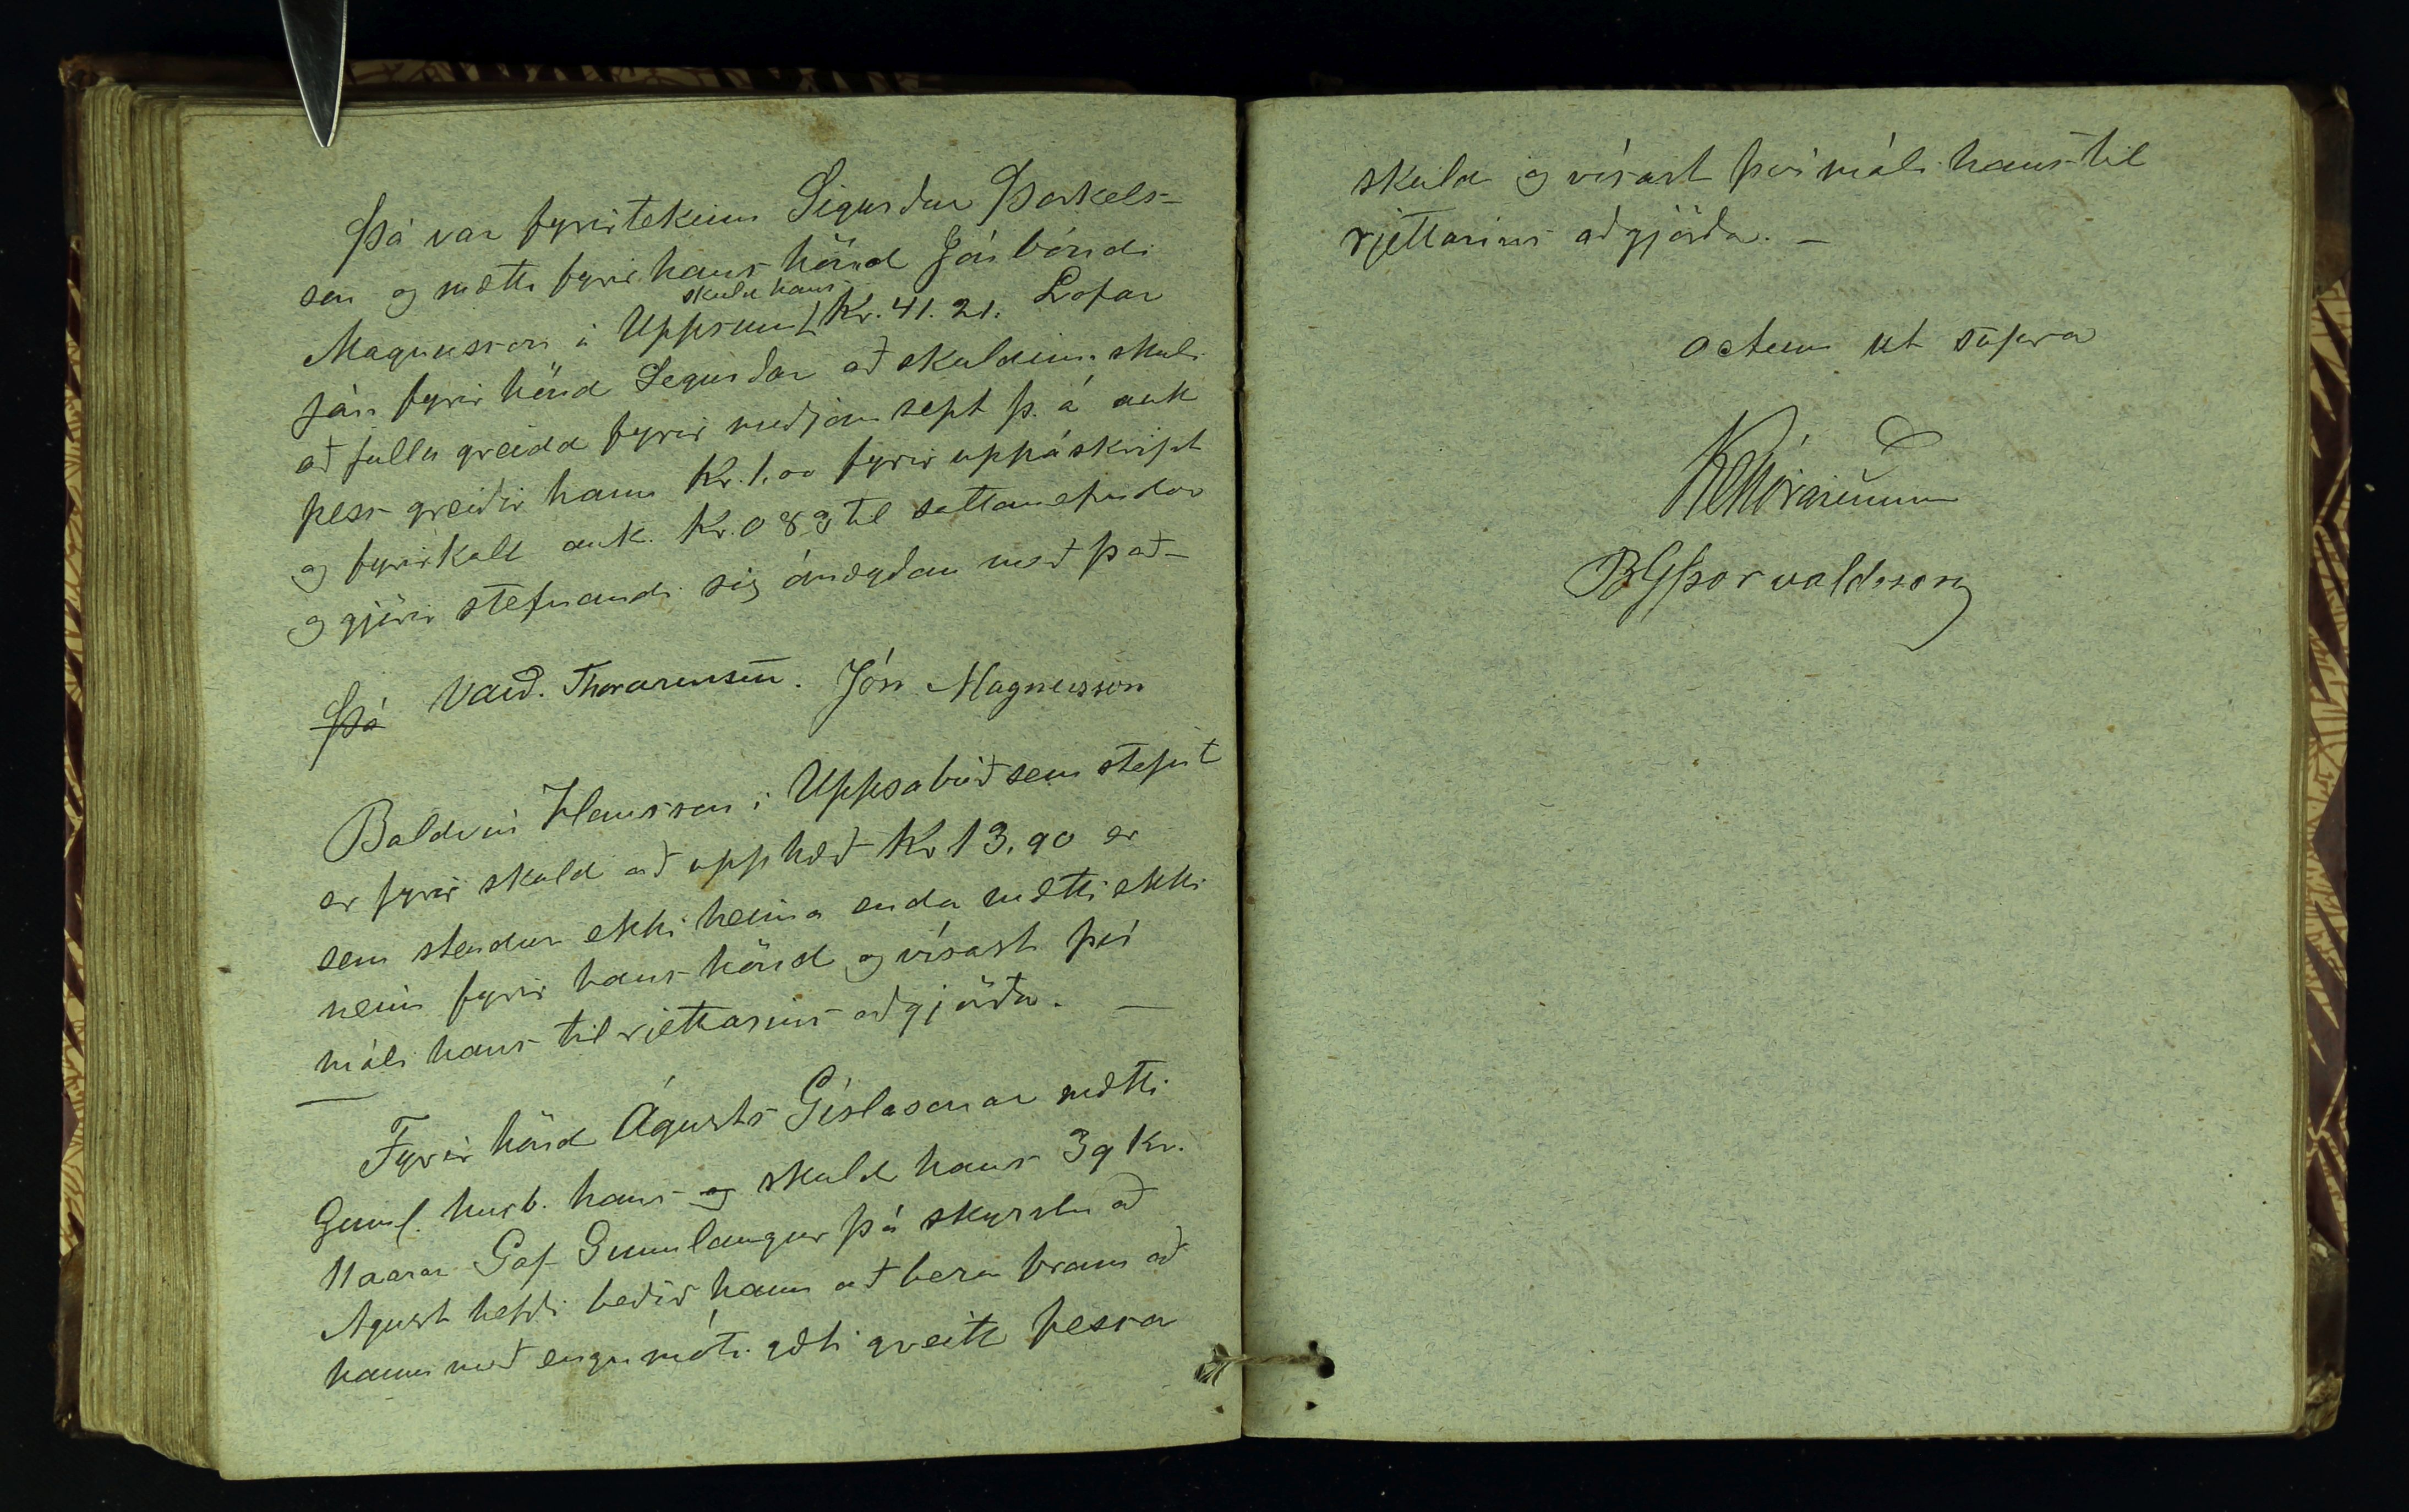 Þá var fyrirtekinn Sigurður Þorkels-
son og mætti fyrir hans hönd Jón bóndi
Magnusson á Uppsum skuld hans Kr. 41.21. Lofar
Jón fyrir hönd Segurðar að skuldin skuli
að fullu greidd fyrir miðjan sept þ. á auk
þess greiðir hann Kr. 1,00 fyrir uppáskript
og fyrirkall auk. Kr. 0 83 til sattanefndar
og gjörir stefnandi sig ánægðan með það-
Þá Vald. Thorarensen. Jón Magnússon
Baldvin Hansson í Uppsabúð sem stefnt
er fyrir skuld að upphæð Kr 13.90 er
sem stendur ekki heima enda mætti ekki
neinn fyrir hans hönd og vísast því
máli hans til rjettarins aðgjörða. —
Fyrir hönd Ágústs Gíslasonar mætti
Gunnl. husb. hans og skuld hans 39 Kr.
11 aurar Gaf Gunnlaugur þá skyrslu að
Agust hefði beðið hann að bera fram að
hann með engu móti gæti greitt þessa
skuld og vísast því máli hans til
rjettarins aðgjörða. —
actum ut supra
BGÞorvaldsson